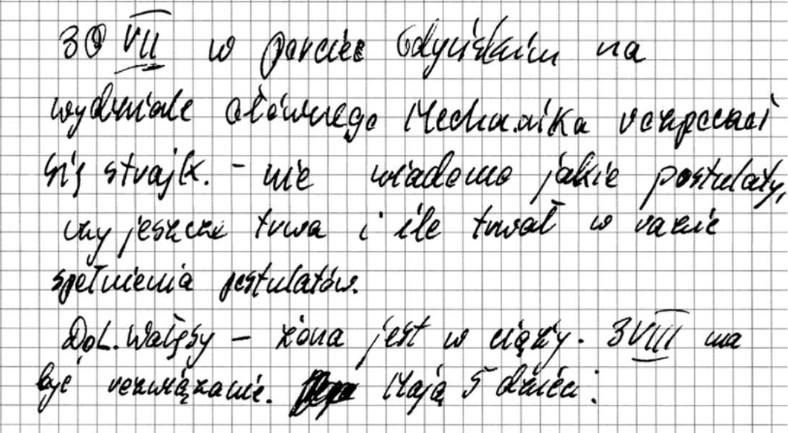 30 VII w porcie Gdyńskim na
wydziale Głównego Mechanika rozpoczął
się strajk. - nie wiadomo jakie postulaty,
czy jeszcze trwa i ile trwał w razie
spełnienia postulatów.
Dot. Wałęsy - żona jest w ciąży. 3 VIII ma
być rozwiązanie. Mają 5 dzieci.